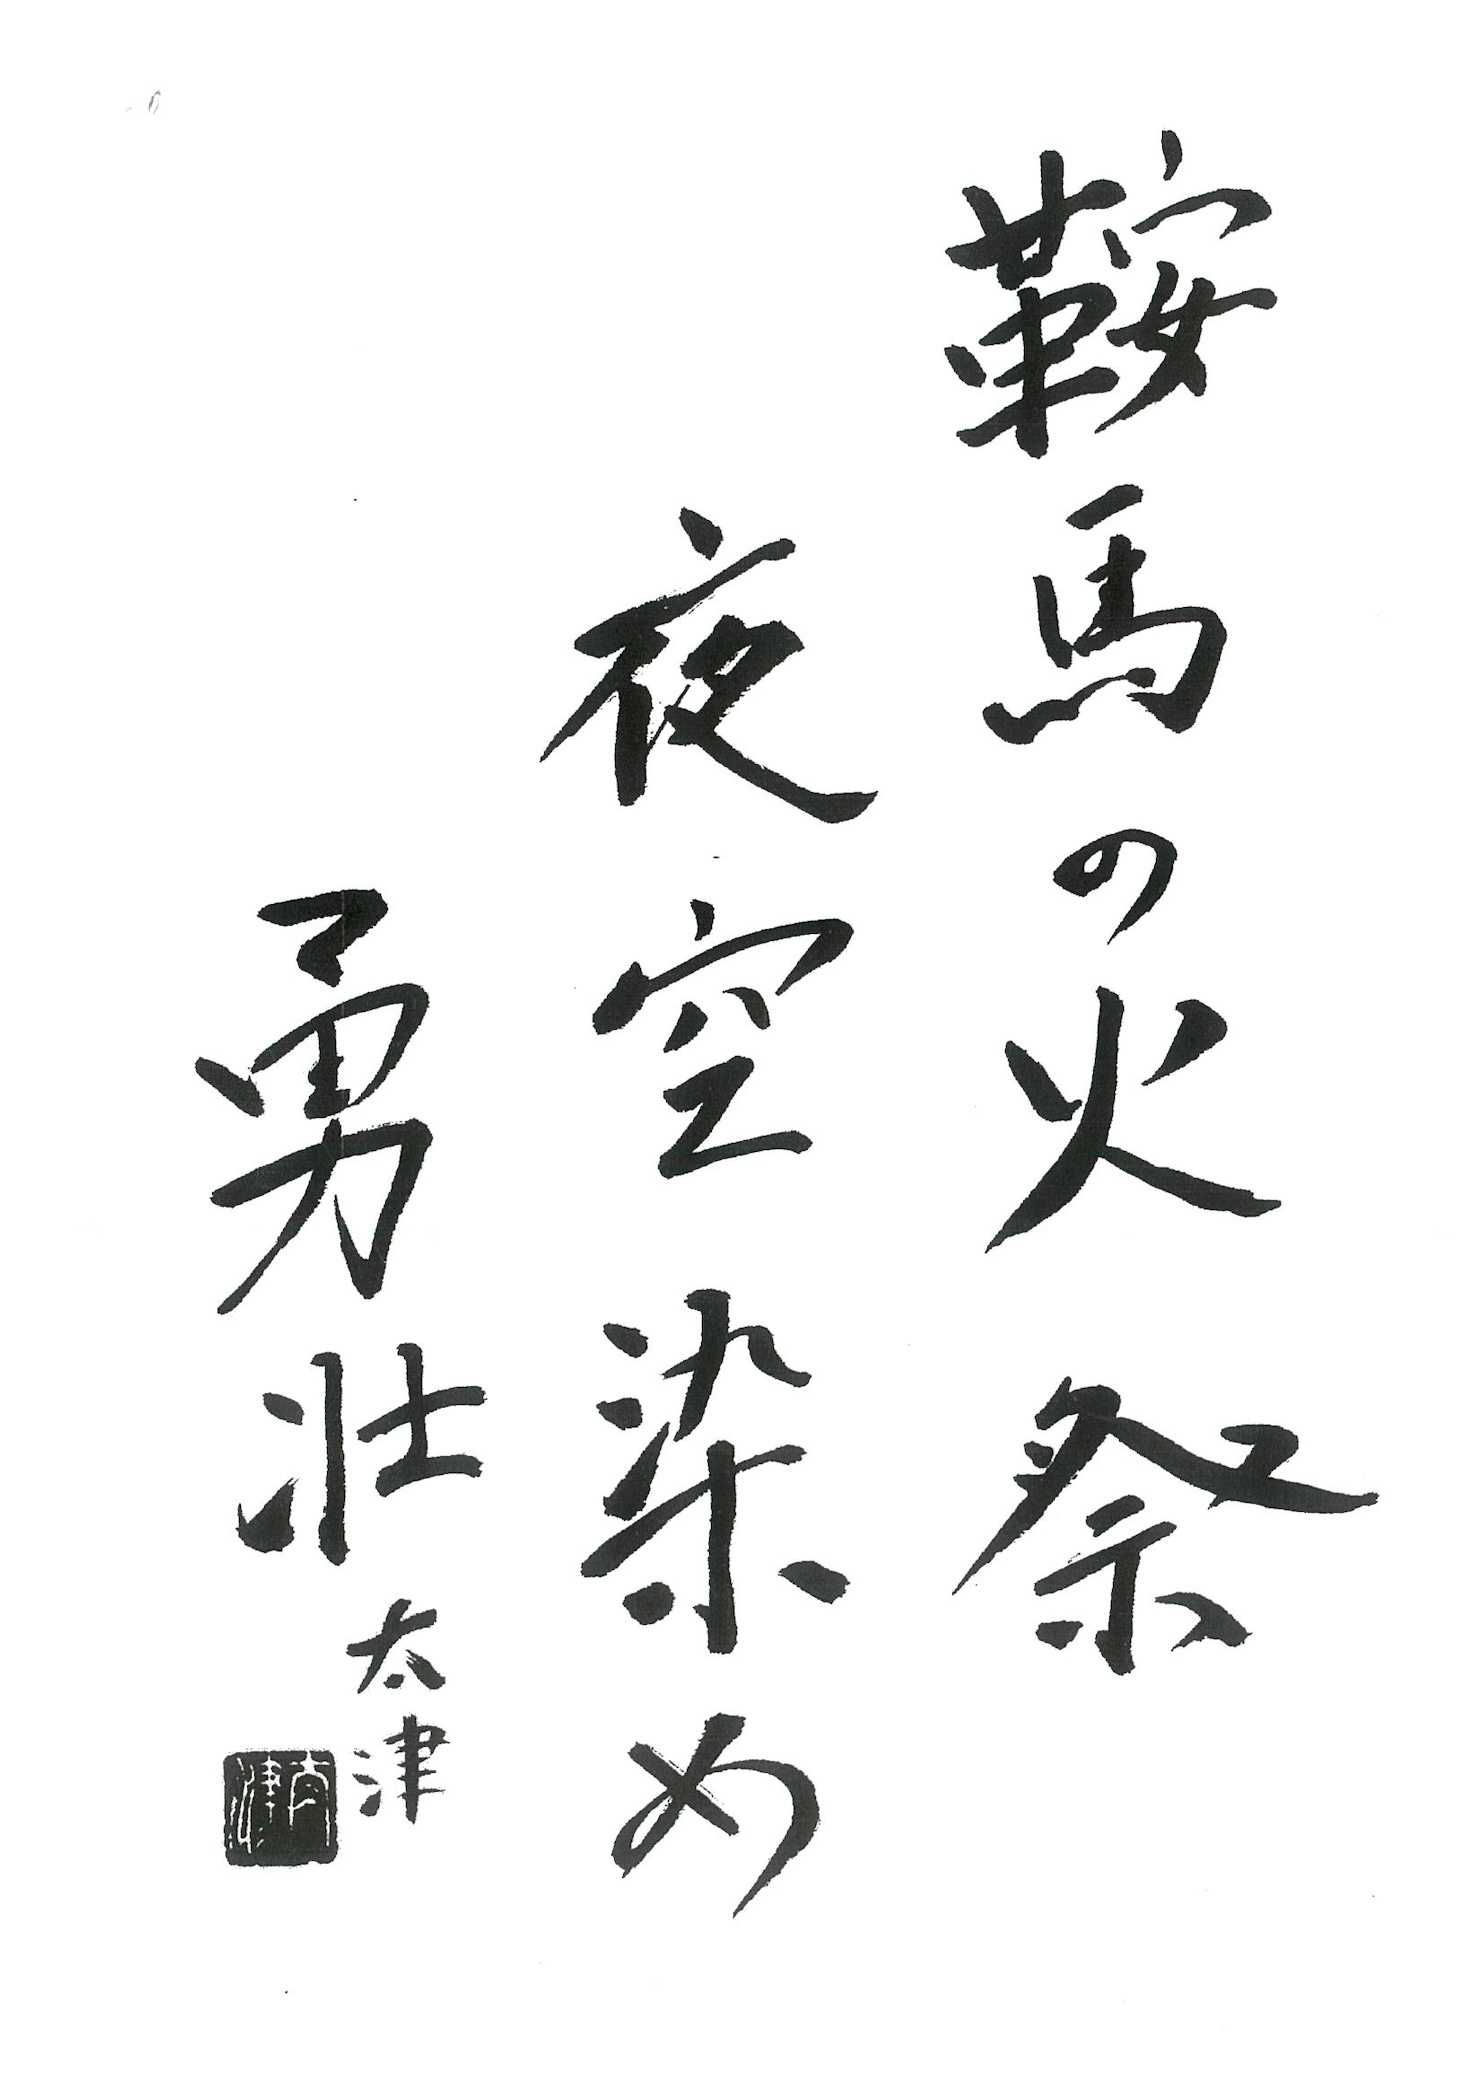 鞍馬の火祭
夜空染め
勇壮
太津